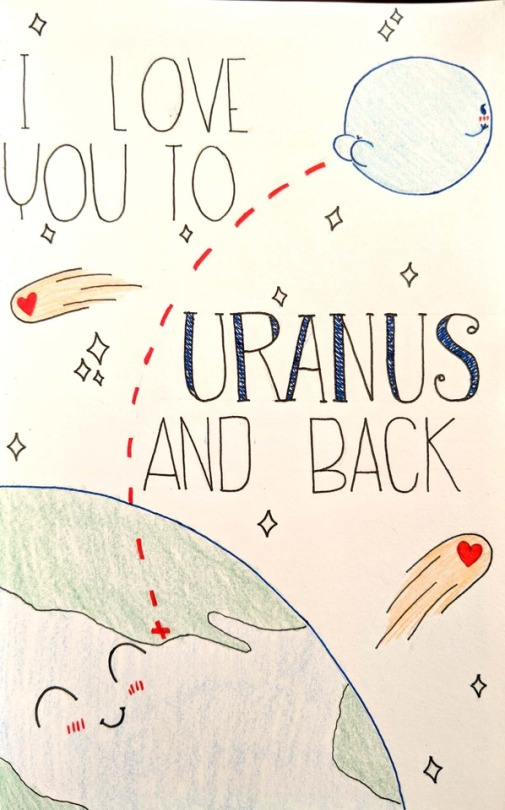 I LOVE
YOU TO
URANUS
AND BACK